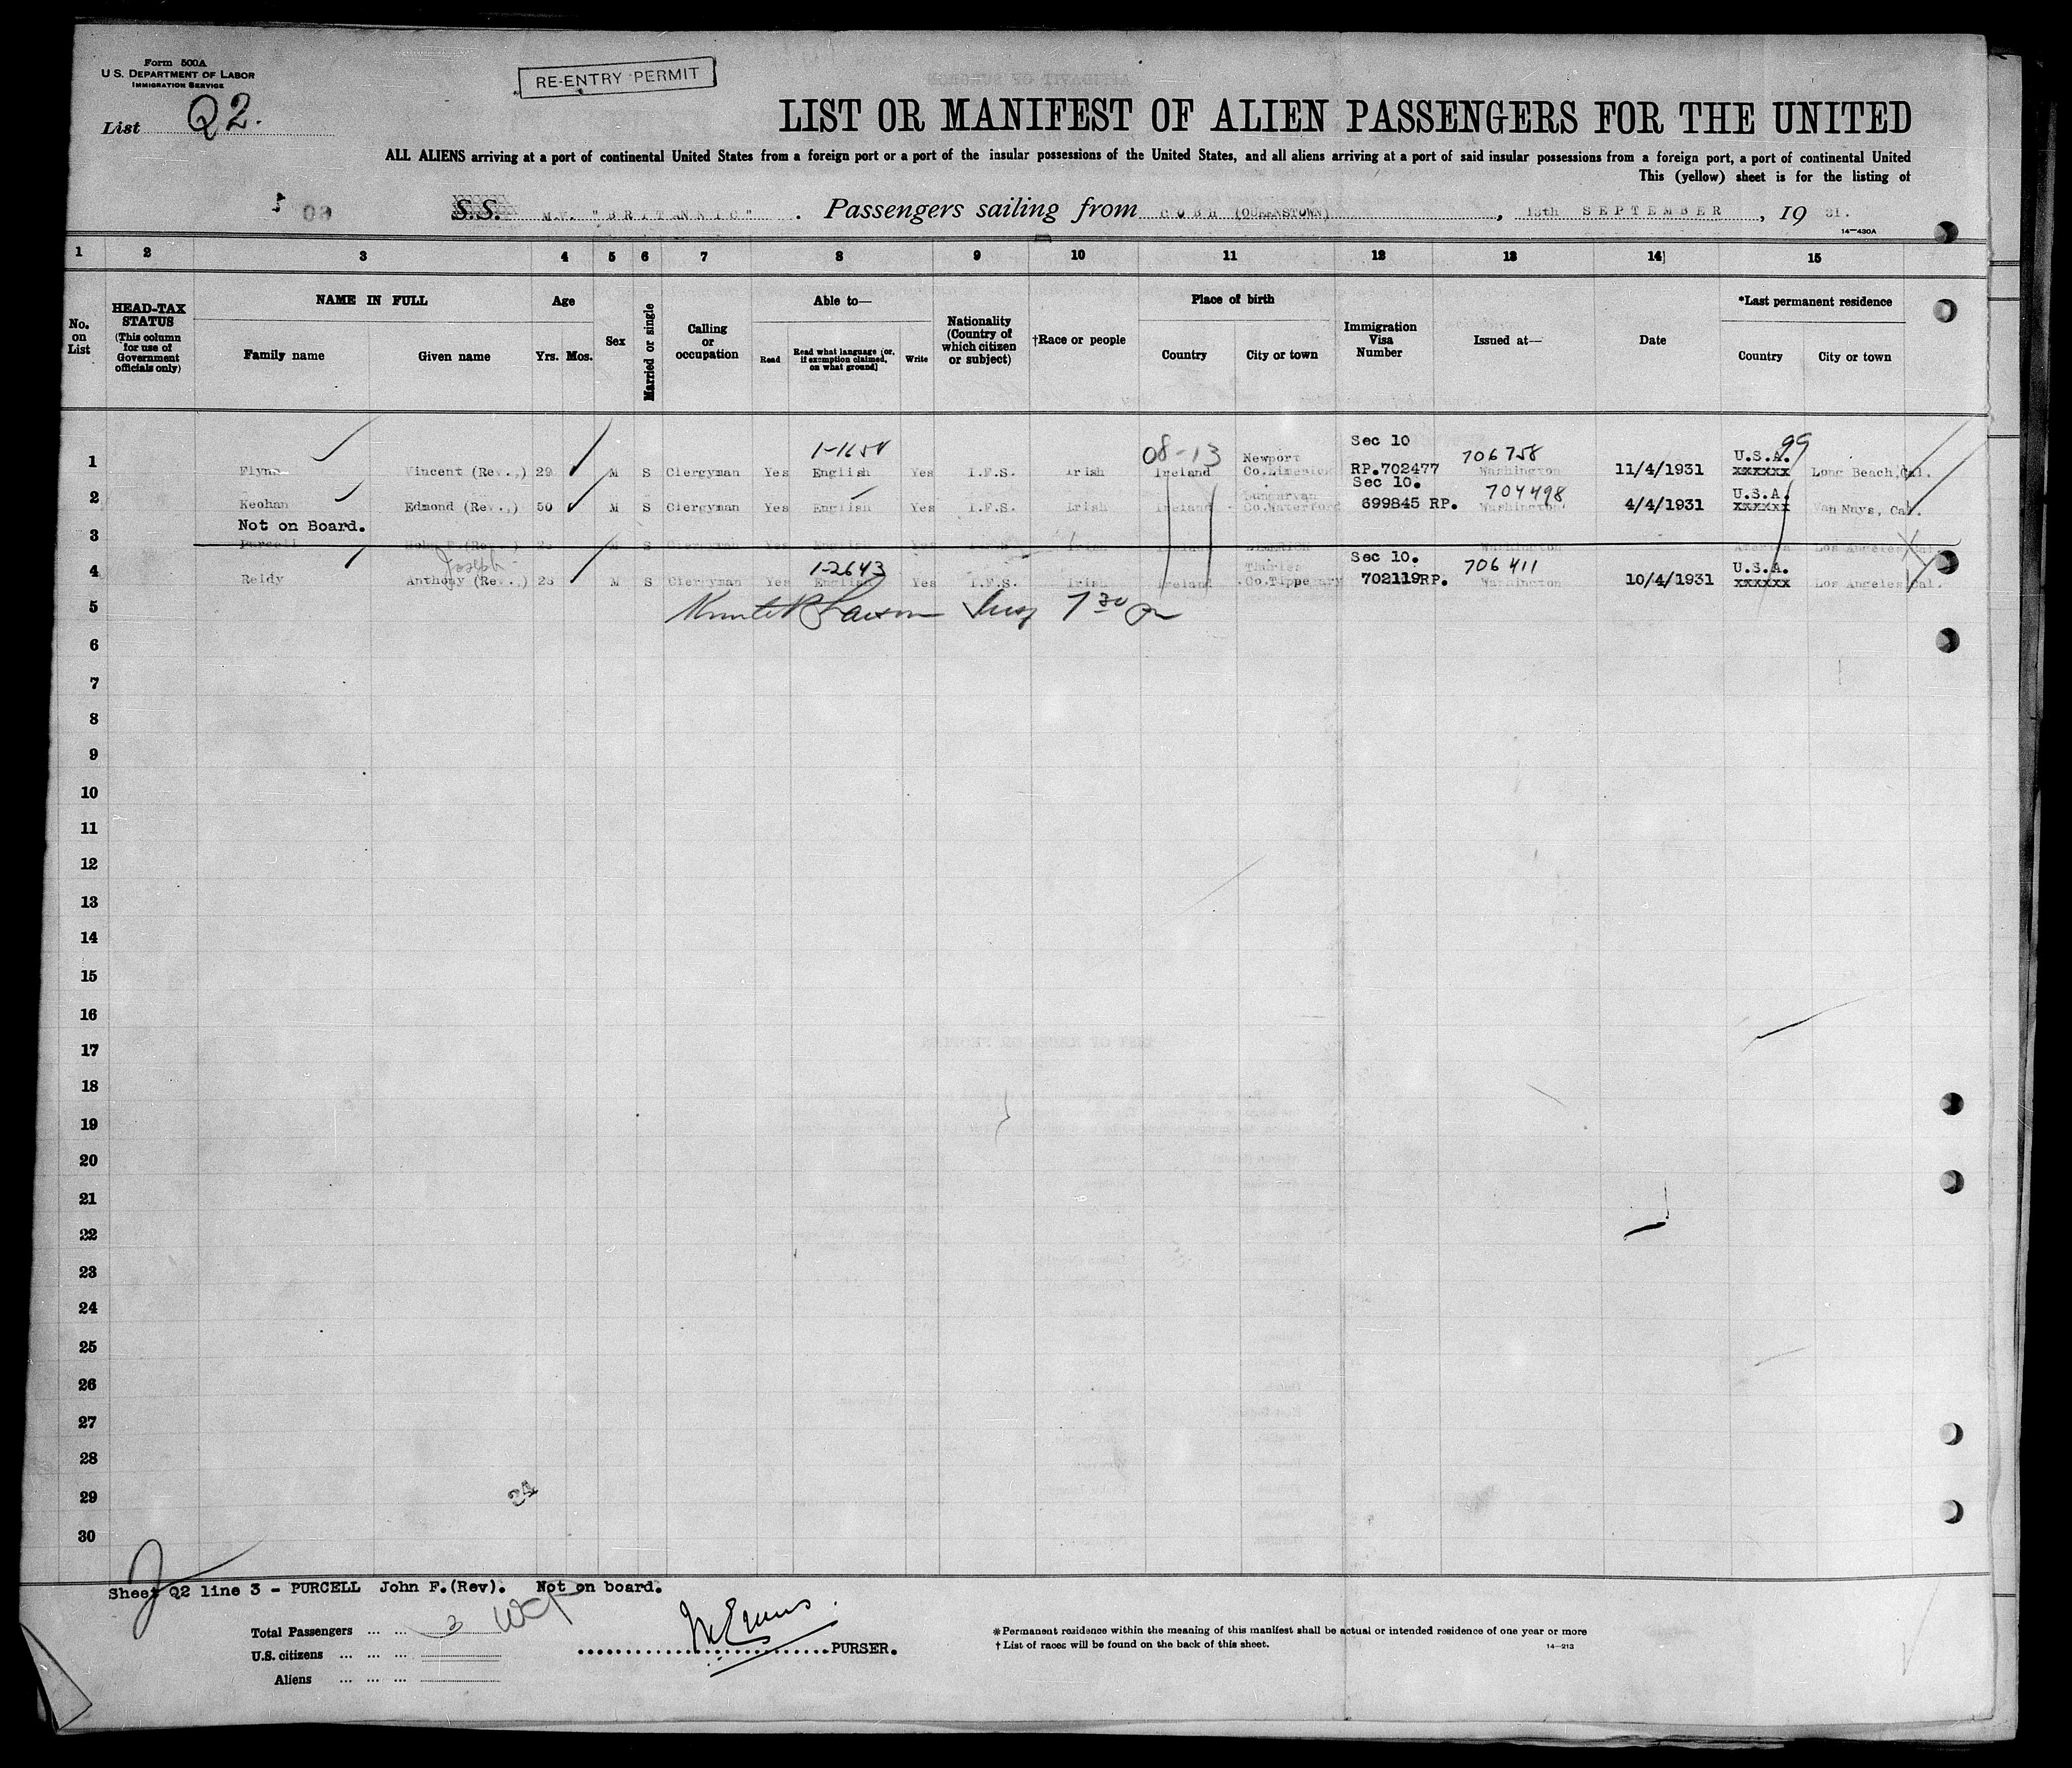 Form 500A
U.S. DEPARTMENT OF LABOR
IMMIGRATION SERVICE
RE-ENTRY PERMIT
List Q2.
LIST OR MANIFEST OF ALIEN PASSENGERS FOR THE UNITED
ALL ALIENS arriving at a port of continental United States from a foreign port or a port of the insular possessions of the United States, and all aliens arriving at a port of said insular possessions from a foreign port, a port of continental United
This (yellow) sheet is for the listing of
S.S. M.V. "BRITANNIC". Passengers sailing from COBH (QUEENSTOWN), SEPTEMBER, 19 31.
14—430A
1 2 3 4 5 6 7 8 9 10 11 12 13 14 15
No. on List
HEAD-TAX STATUS (This column for use of Government officials only)
NAME IN FULL
Family name
Given name
Age
Yrs. Mos.
Sex
Married or single
Calling or occupation
Able to—
Read
Read what language [or, if exemption claimed, on what ground]
Write
Nationality (Country of which citizen or subject)
†Race or people
Place of birth
Country
City or town
Immigration Visa Number
Issued at—
Date
*Last permanent residence
Country
City or town
08-13 Newport Sec 10 706758 U.S.A. 99
1 Flynn Vincent (Rev.,) 29 M S Clergyman Yes English Yes I.F.S. Irish Ireland Co.Limerick RP.702477 Washington 11/4/1931 xxxxxx Long Beach, Cal.
Dungarvan Sec 10. 704498 U.S.A.
2 Keohan Edmond (Rev.,) 50 M S Clergyman Yes English Yes I.F.S. Irish Ireland Co.Waterford 699845 RP. Washington 4/4/1931 xxxxxx Van Nuys, Cal.
Not on Board.
3 Purcell John F (Rev.,) M S Clergyman Yes English Yes I.F.S. Irish Ireland Washington America Los Angeles Cal
Joseph 1-2643 Thurles Sec 10. 706411 U.S.A.
4 Reidy Anthony (Rev.,) 28 M S Clergyman Yes English Yes I.F.S. Irish Ireland Co.Tipperary 702119RP. Washington 10/4/1931 xxxxxx Los Angeles Cal.
5
6
7
8
9
10
11
12
13
14
15
16
17
18
19
20
21
22
23
24
25
26
27
28
29
30
24
Sheet Q2 line 3 - PURCELL John F.(Rev). Not on board.
Total Passengers ... ... 3
U.S. citizens ... ... ...
Aliens ... ... ...
PURSER.
*Permanent residence within the meaning of this manifest shall be actual or intended residence of one year or more
† List of races will be found on the back of this sheet.
14—213